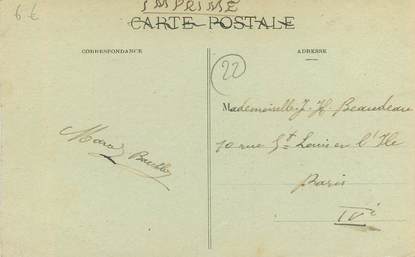 6 €
IMPRIMÉ
CARTE POSTALE
CORRESPONDANCE
ADRESSE
22
Mademoiselle J. H. Beaudeau
70 rue St Louis en l'Ile
Paris
IVe